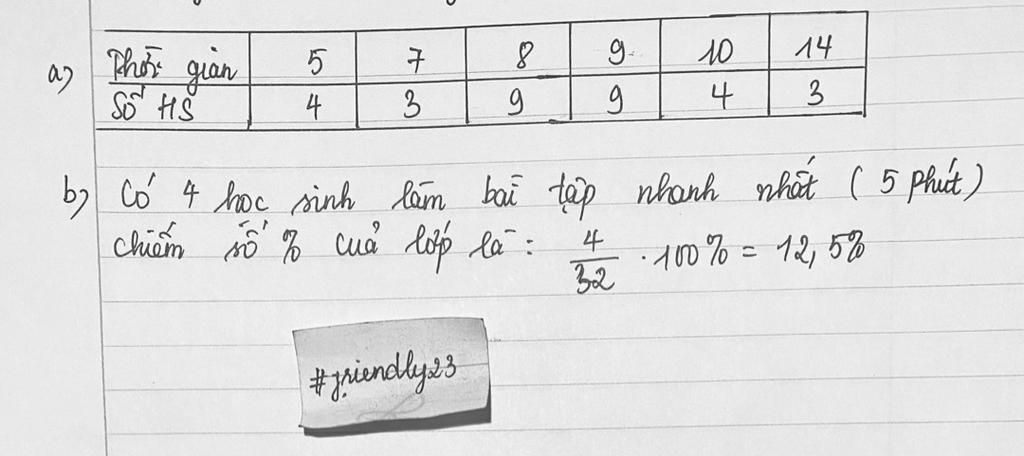 a) Thời gian 5 7 8 9 10 14
Số HS 4 3 9 9 4 3
b) Có 4 học sinh làm bài tập nhanh nhất ( 5 phút )
chiếm số % của lớp là : 4/32 . 100% = 12,5%
#friendly23